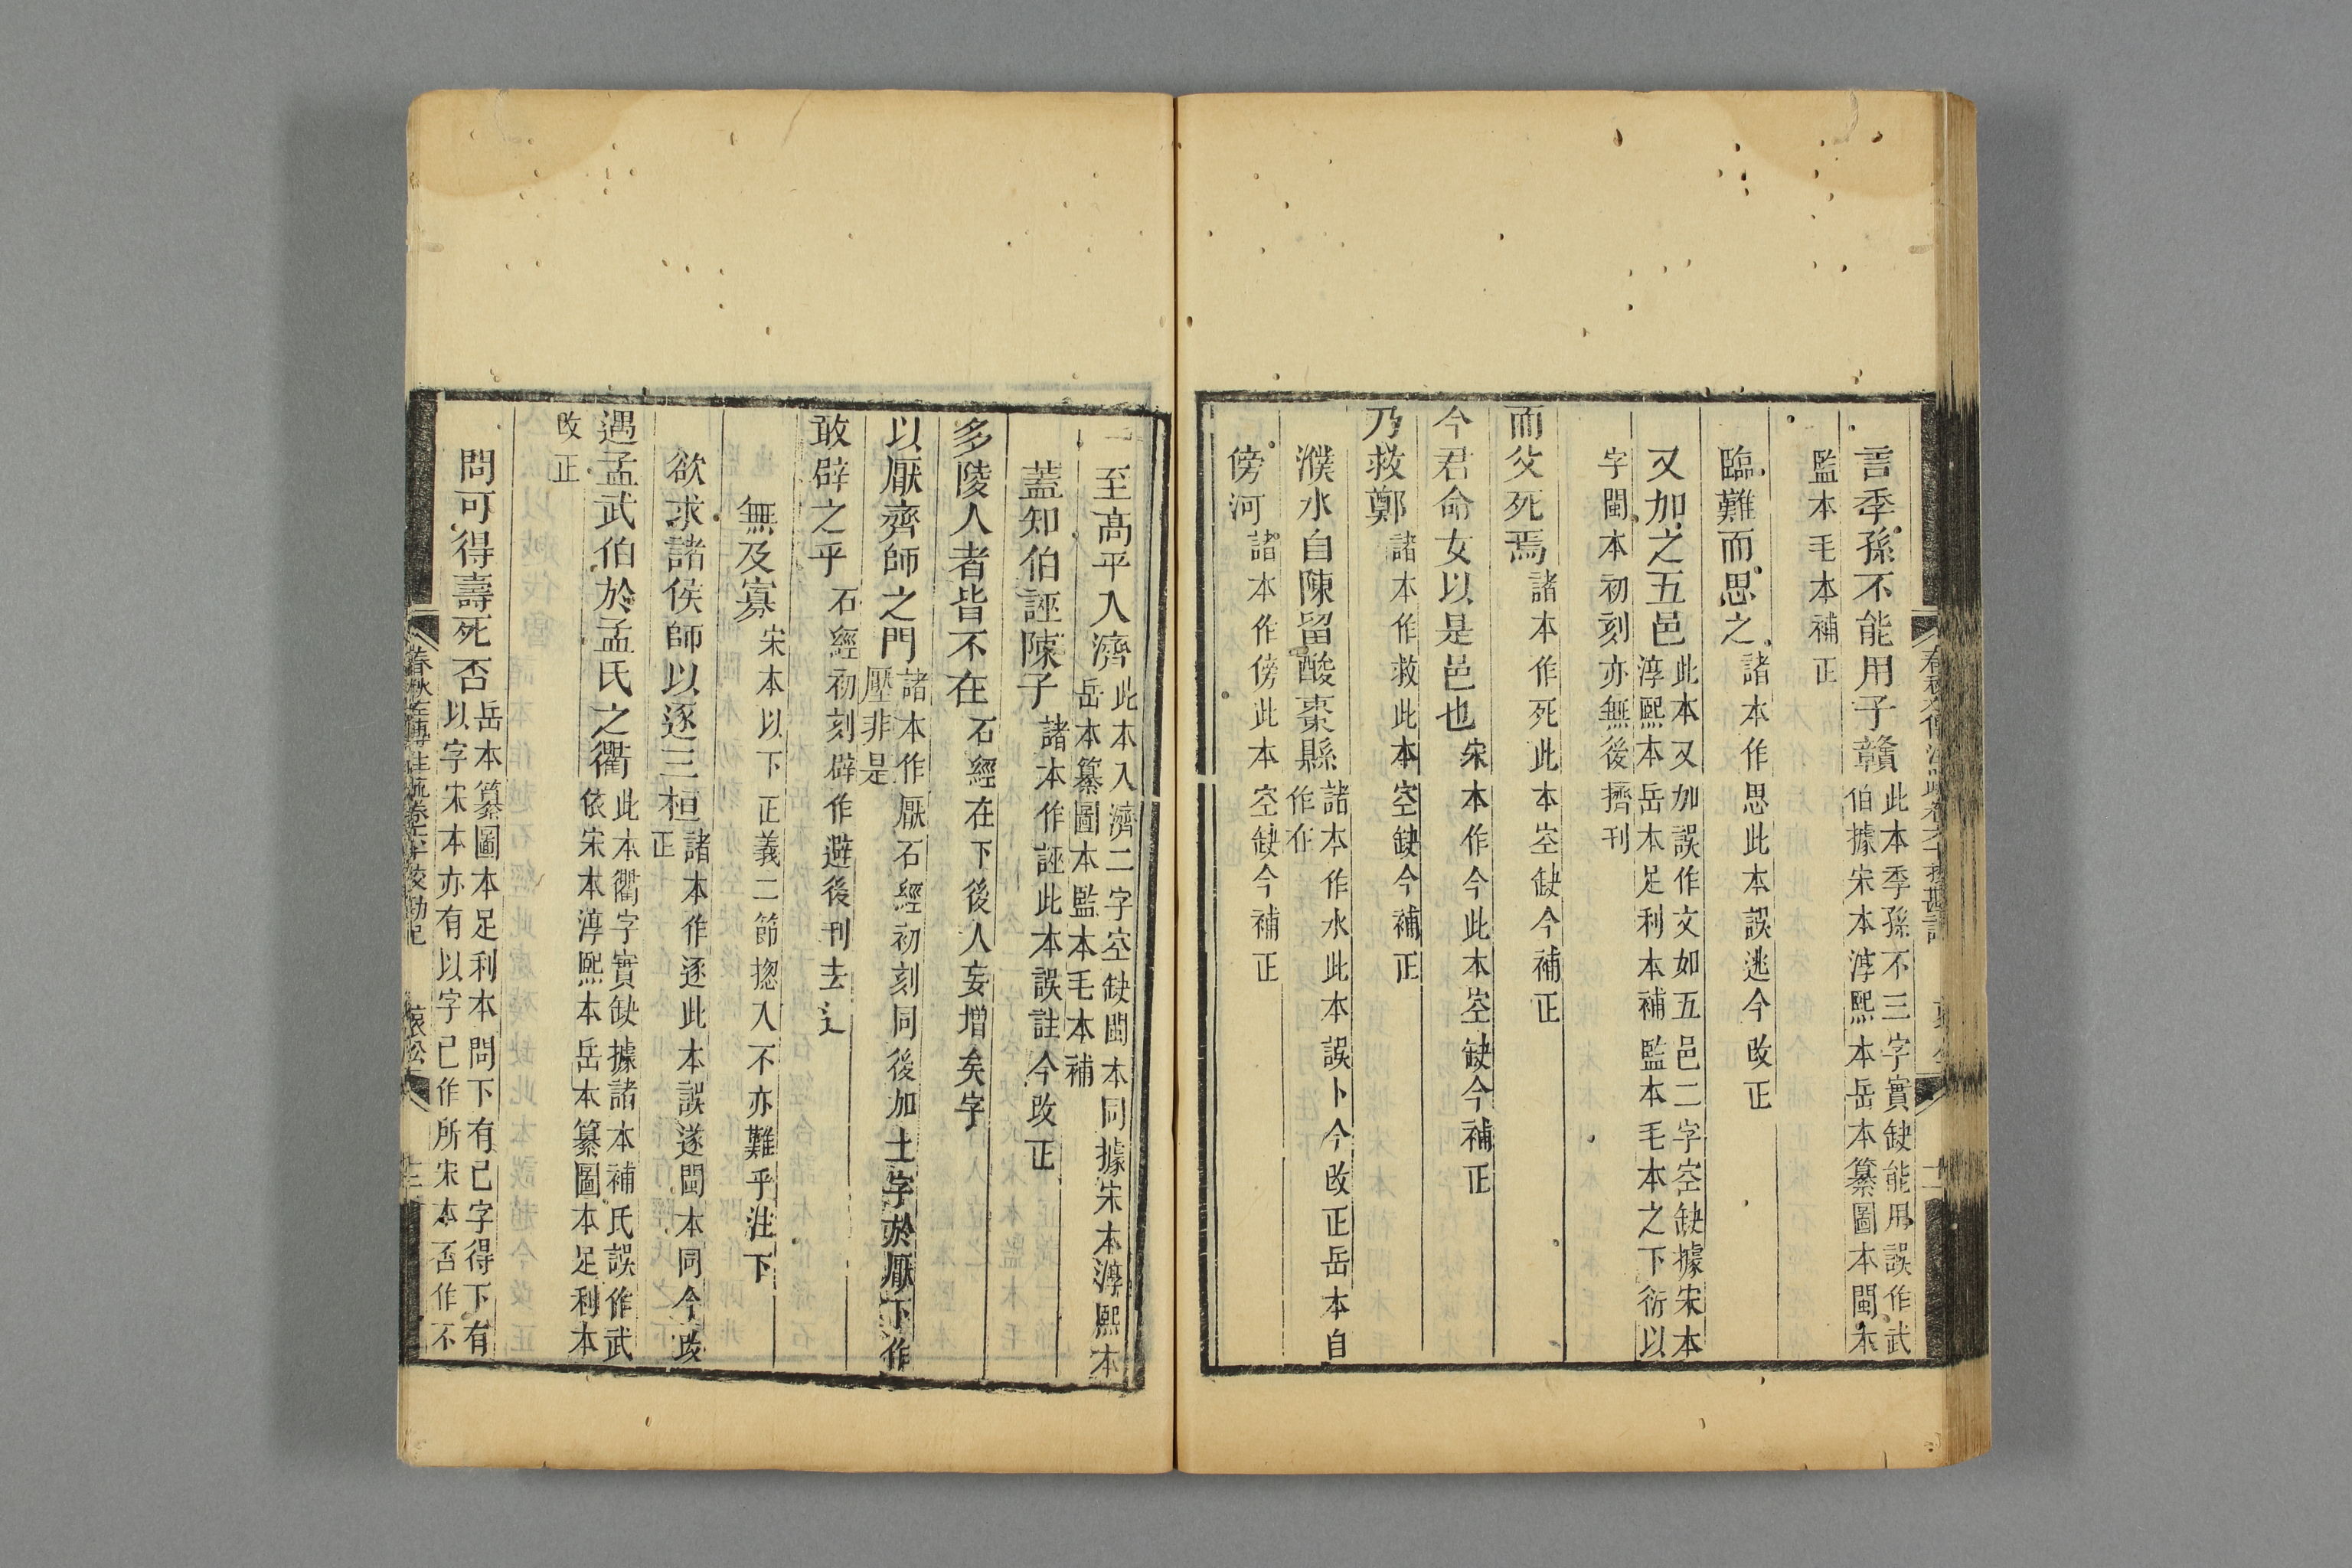 言季孫不能用子贛此本季孫不三字實缺能用誤作武
伯據宋本淳熙本岳本纂圖本閩本
監本毛本補正
臨難而思之諸本作思此本誤逃今改正
又加之五邑此本又加誤作文如五邑二字空缺據宋本
淳熙本岳本足利本補監本毛本之下衍以
字閩本初刻亦無後擠刊
而父死焉諸本作死此本空缺今補正
今君命女以是邑也宋本作今此本空缺今補正
乃救鄭諸本作救此本空缺今補正
濮水自陳留酸棗縣諸本作水此本誤卜今改正岳本自
作在
傍河諸本作傍此本空缺今補正
至高平入濟此本入濟二字空缺閩本同據宋本淳熙本
岳本纂圖本監本毛本補
蓋知伯誣陳子諸本作誣此本誤註今改正
多陵人者皆不在石經在下後人妄增矣字
以厭齊師之門諸本作厭石經初刻同後加土字於厭下作
壓非是
敢辟之乎石經初刻辟作避後刊去辶
無及寡宋本以下正義二節揔入不亦難乎注下
欲求諸侯師以逐三桓諸本作逐此本誤遂閩本同今改
正
遇孟武伯於孟氏之衢此本衢字實缺據諸本補氏誤作武
依宋本淳熙本岳本纂圖本足利本
改正
問可得壽死否岳本纂圖本足利本問下有己字得下有
以字宋本亦有以字己作所宋本否作不
春秋左傳注疏卷六十校勘記